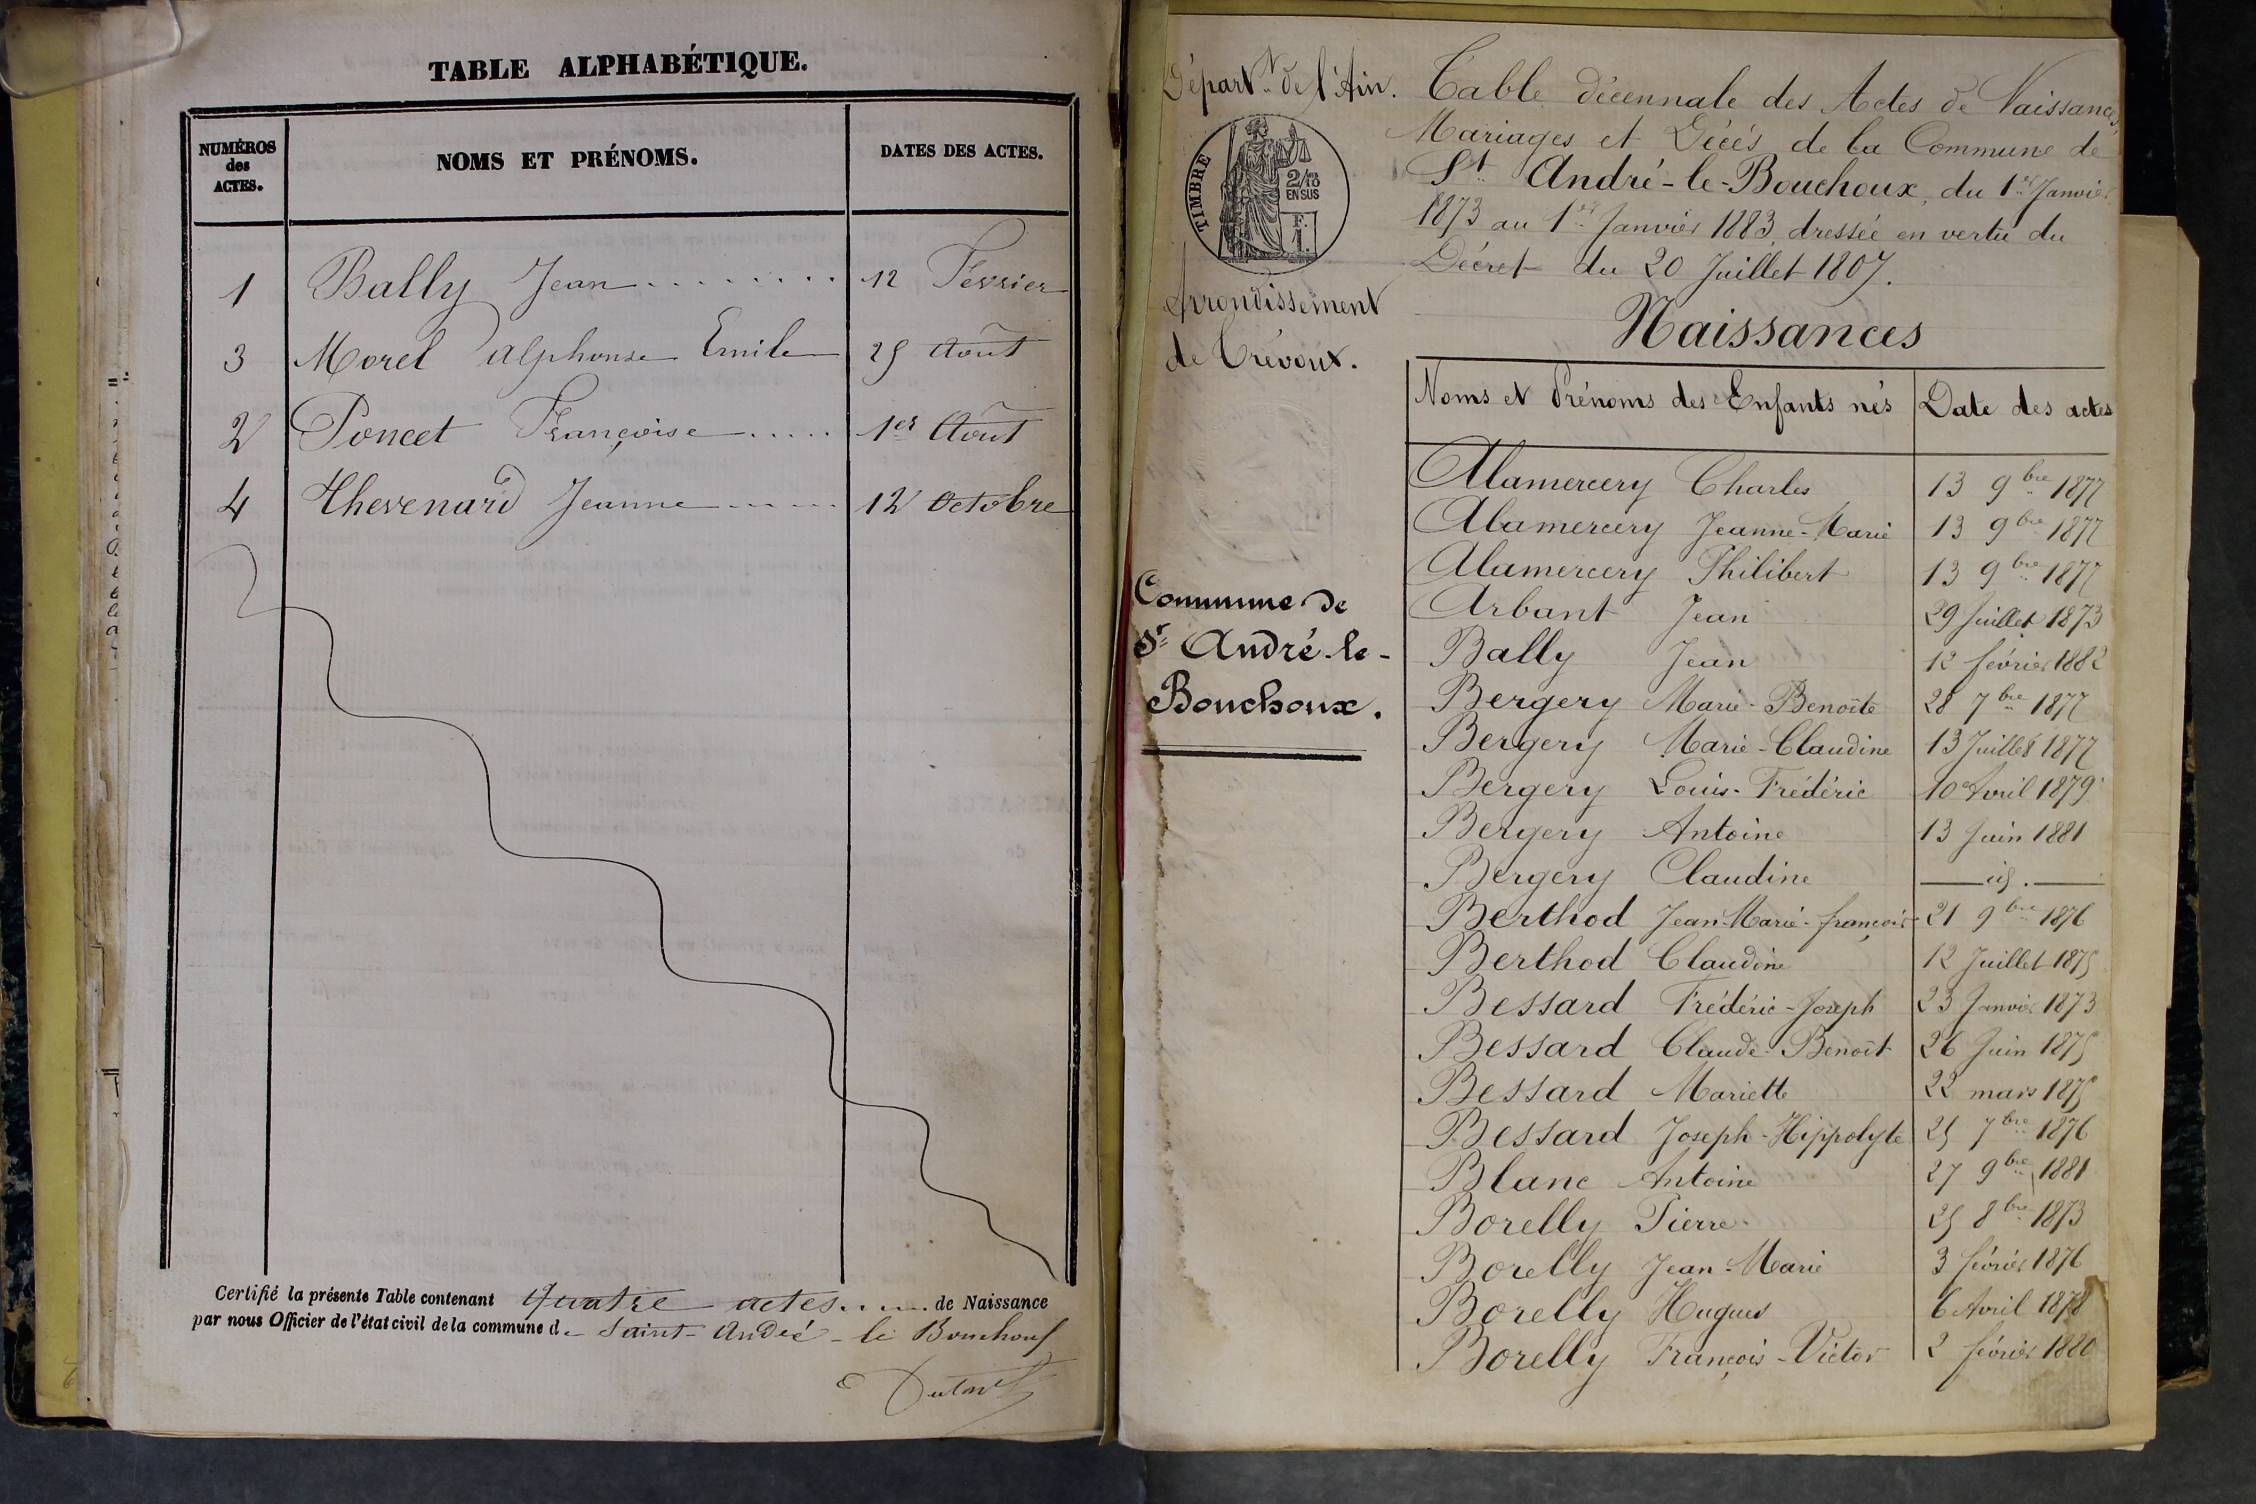 TABLE ALPHABÉTIQUE.
NUMÉROS des ACTES. NOMS ET PRÉNOMS. DATES DES ACTES.
1 Bally Jean ........ 12 Février
3 Morel Alphonse Emile 25 Août
2 Poncet Françoise ..... 1er Août
4 Thevenard Jeanne ..... 12 Octobre
Certifié la présente Table contenant Quatre actes..... de Naissance
par nous Officier de l'état civil de la commune de Saint-André-le Bouchoux
Départt de l'Ain.
TIMBRE
2/10 EN SUS
F. 1.
Arrondissement
de Trévoux.
Commune de
St André-le-
Bouchoux.
Table décennale des Actes de Naissances,
Mariages et Décès de la Commune de
St André-le-Bouchoux, du 1er Janvier
1873 au 1er Janvier 1883, dressée en vertu du
Décret du 20 Juillet 1807.
Naissances
Noms et Prénoms des Enfants nés Date des actes
Alamercery Charles 13 9bre 1877
Alamercery Jeanne-Marie 13 9bre 1877
Alamercery Philibert 13 9bre 1877
Arbant Jean 29 Juillet 1873
Bally Jean 12 février 1882
Bergery Marie-Benoîte 28 7bre 1877
Bergery Marie-Claudine 13 Juillet 1877
Bergery Louis-Frédéric 10 Avril 1879
Bergery Antoine 13 Juin 1881
Bergery Claudine — id. —
Berthod Jean-Marie-françois 21 9bre 1876
Berthod Claudine 12 Juillet 1875
Bessard Frédéric-Joseph 23 Janvier 1873
Bessard Claude-Benoît 26 Juin 1875
Bessard Mariette 22 mars 1875
Bessard Joseph-Hippolyte 25 7bre 1876
Blanc Antoine 27 9bre 1881
Borelly Pierre 25 8bre 1873
Borelly Jean-Marie 3 février 1876
Borelly Hugues 6 Avril 1878
Borelly François-Victor 2 février 1880